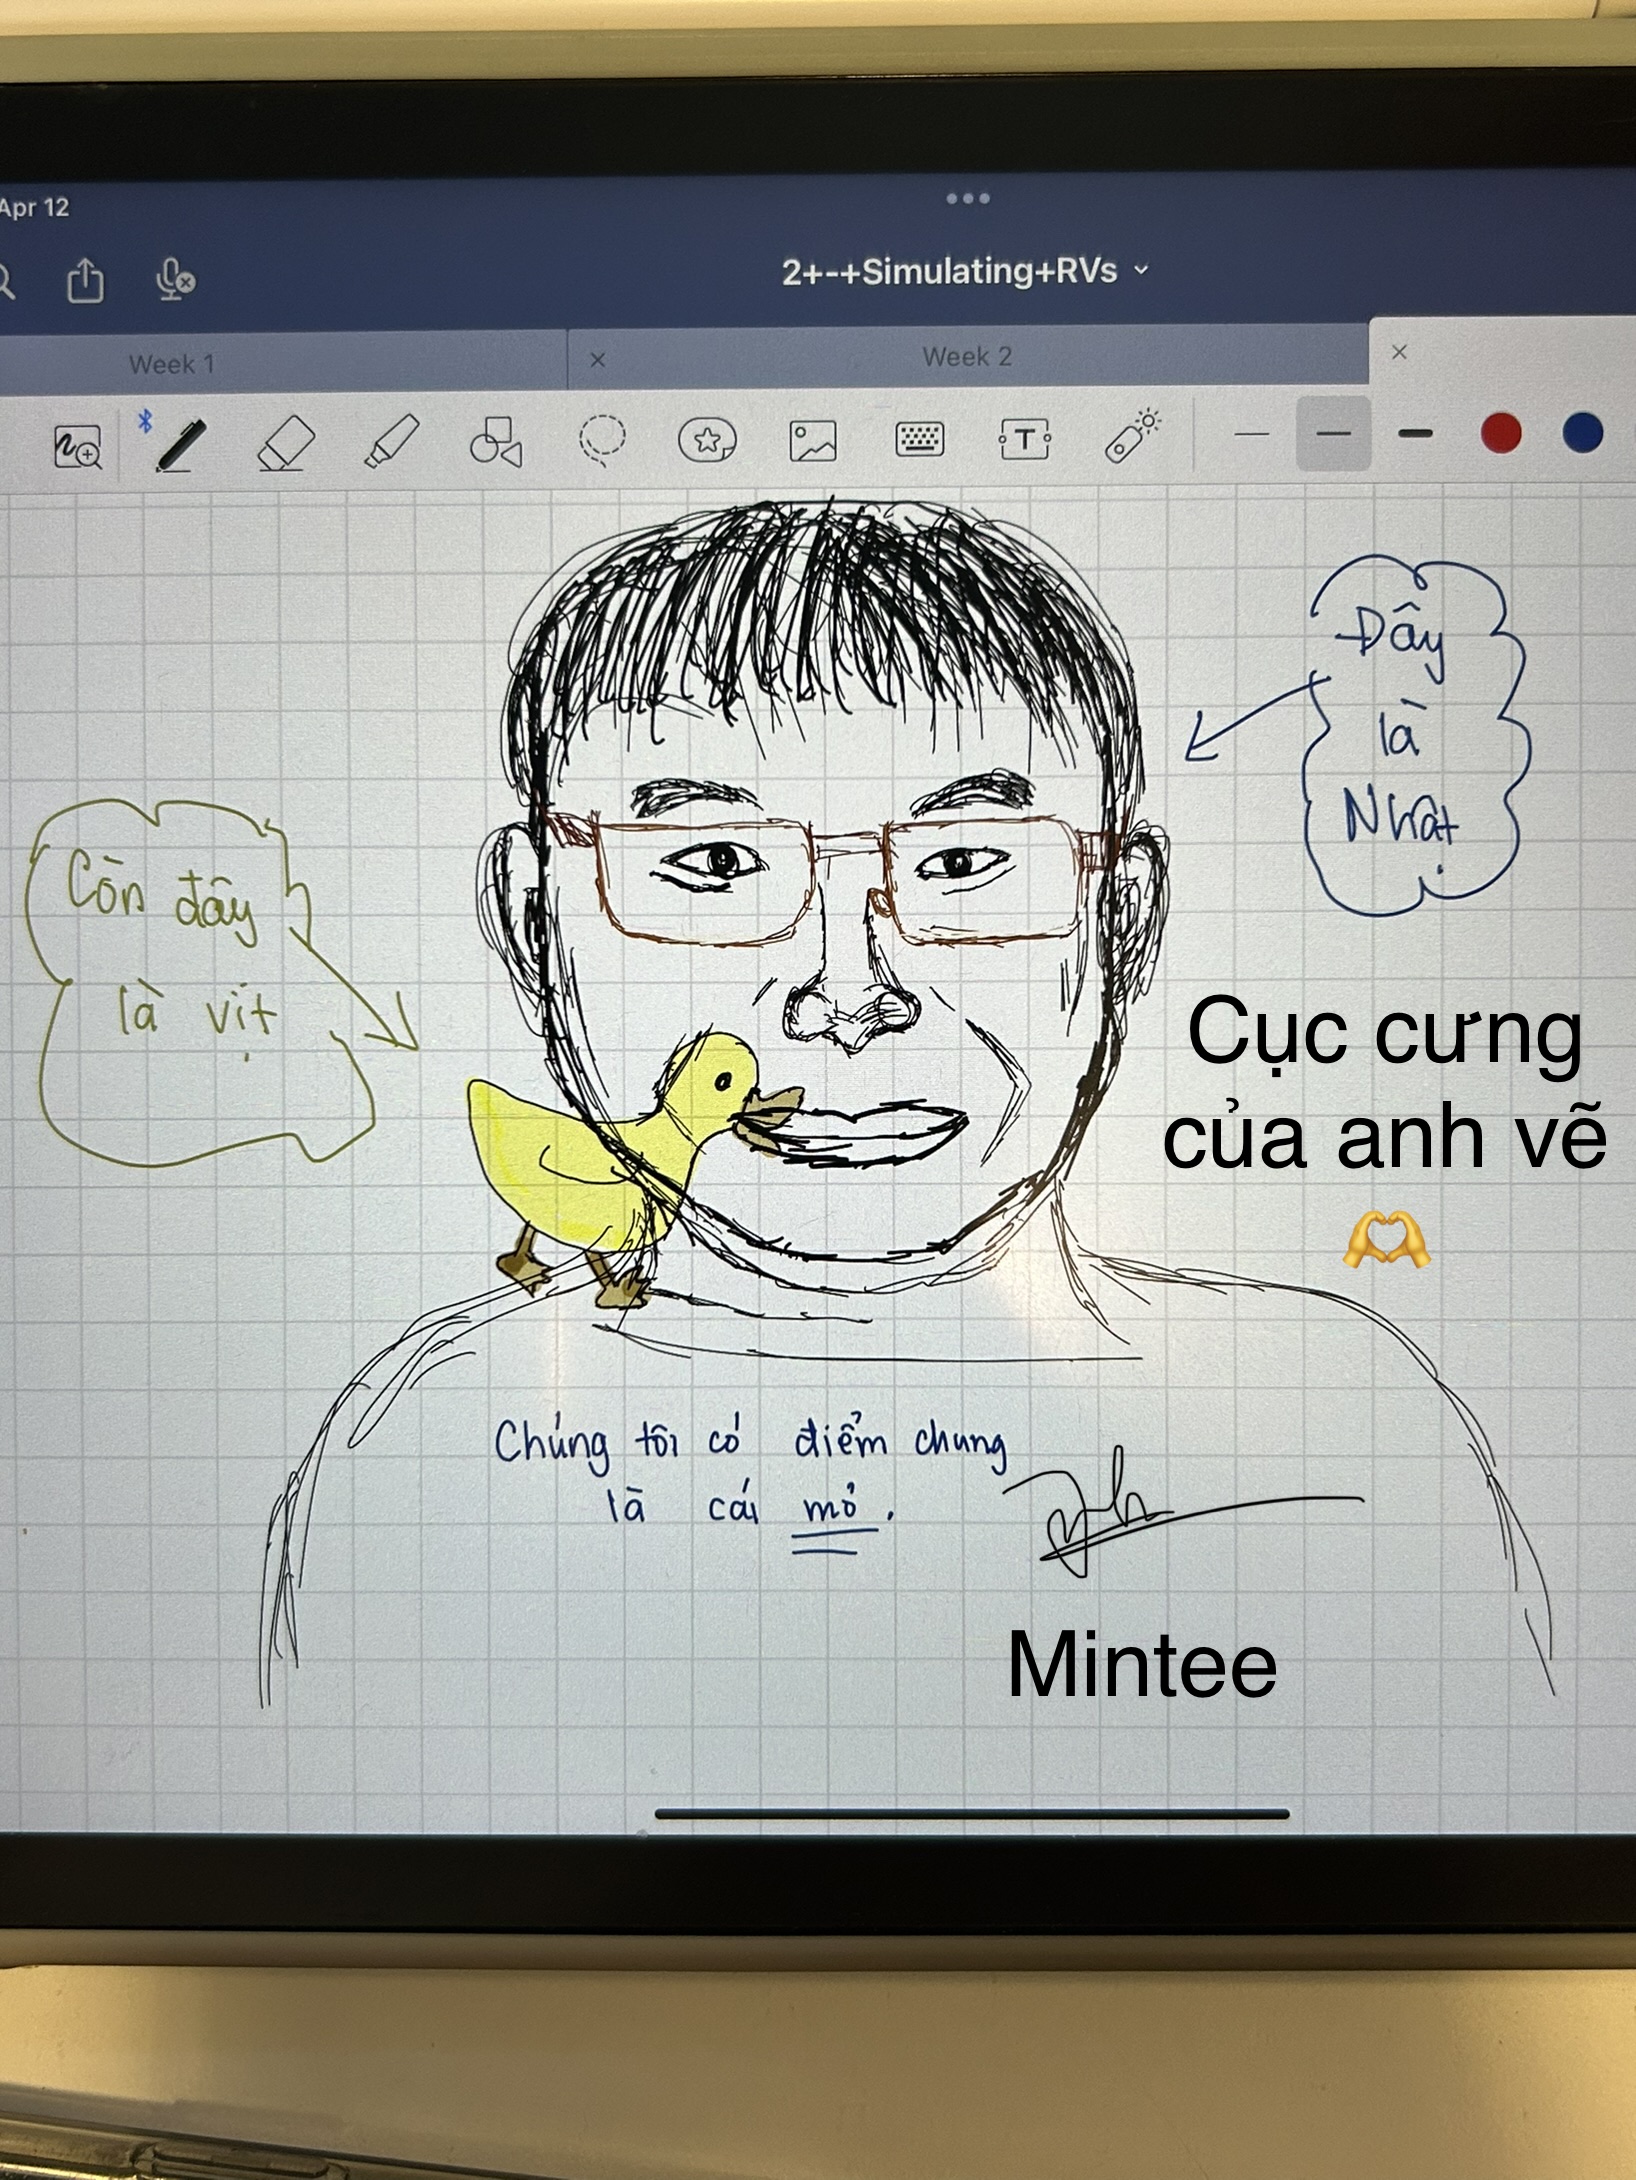 Apr 12
2+-+Simulating+RVs
Week 1
Week 2
T
Đây
là
Nhật
Còn đây
là vịt
Cục cưng
của anh vẽ
Chúng tôi có điểm chung
là cái mỏ.
Mintee